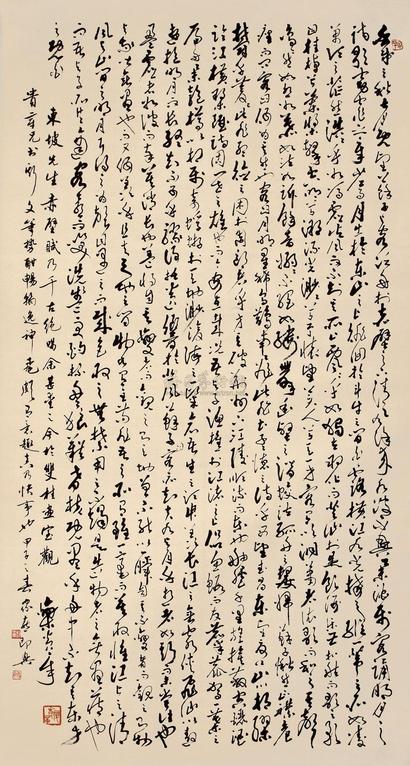 壬戌之秋七月既望蘇子與客泛舟遊於赤壁之下清風徐來水波不興舉酒屬客誦明月之
詩歌窈窕之章少焉月出於東山之上徘徊於斗牛之間白露橫江水光接天縱一葦之所如凌
萬頃之茫然浩浩乎如馮虛御風而不知其所止飄飄乎如遺世獨立羽化而登仙於是飲酒樂甚扣舷而歌之歌
曰桂棹兮蘭槳擊空明兮溯流光渺渺兮予懷望美人兮天一方客有吹洞簫者倚歌而和之其聲
嗚嗚然如怨如慕如泣如訴餘音嫋嫋不絕如縷舞幽壑之潛蛟泣孤舟之嫠婦蘇子愀然正襟危
坐而問客曰何為其然也客曰月明星稀烏鵲南飛此非曹孟德之詩乎西望夏口東望武昌山川相繆
鬱乎蒼蒼此非孟德之困於周郎者乎方其破荊州下江陵順流而東也舳艫千里旌旗蔽空釃酒
臨江橫槊賦詩固一世之雄也而今安在哉況吾與子漁樵於江渚之上侶魚蝦而友麋鹿駕一葉之
扁舟舉匏樽以相屬寄蜉蝣於天地渺滄海之一粟哀吾生之須臾羨長江之無窮挾飛仙以遨
遊抱明月而長終知不可乎驟得託遺響於悲風蘇子曰客亦知夫水與月乎逝者如斯而未嘗往也
盈虛者如彼而卒莫消長也蓋將自其變者而觀之則天地曾不能以一瞬自其不變者而觀之則物
與我皆無盡也而又何羨乎且夫天地之間物各有主苟非吾之所有雖一毫而莫取惟江上之清
風與山間之明月耳得之而為聲目遇之而成色取之無禁用之不竭是造物者之無盡藏也
而吾與子之所共適客喜而笑洗盞更酌肴核既盡杯盤狼藉相與枕藉乎舟中不知東方
之既白
東坡先生赤壁賦乃千古絕唱余
文筆酣暢 快事也甲子之春